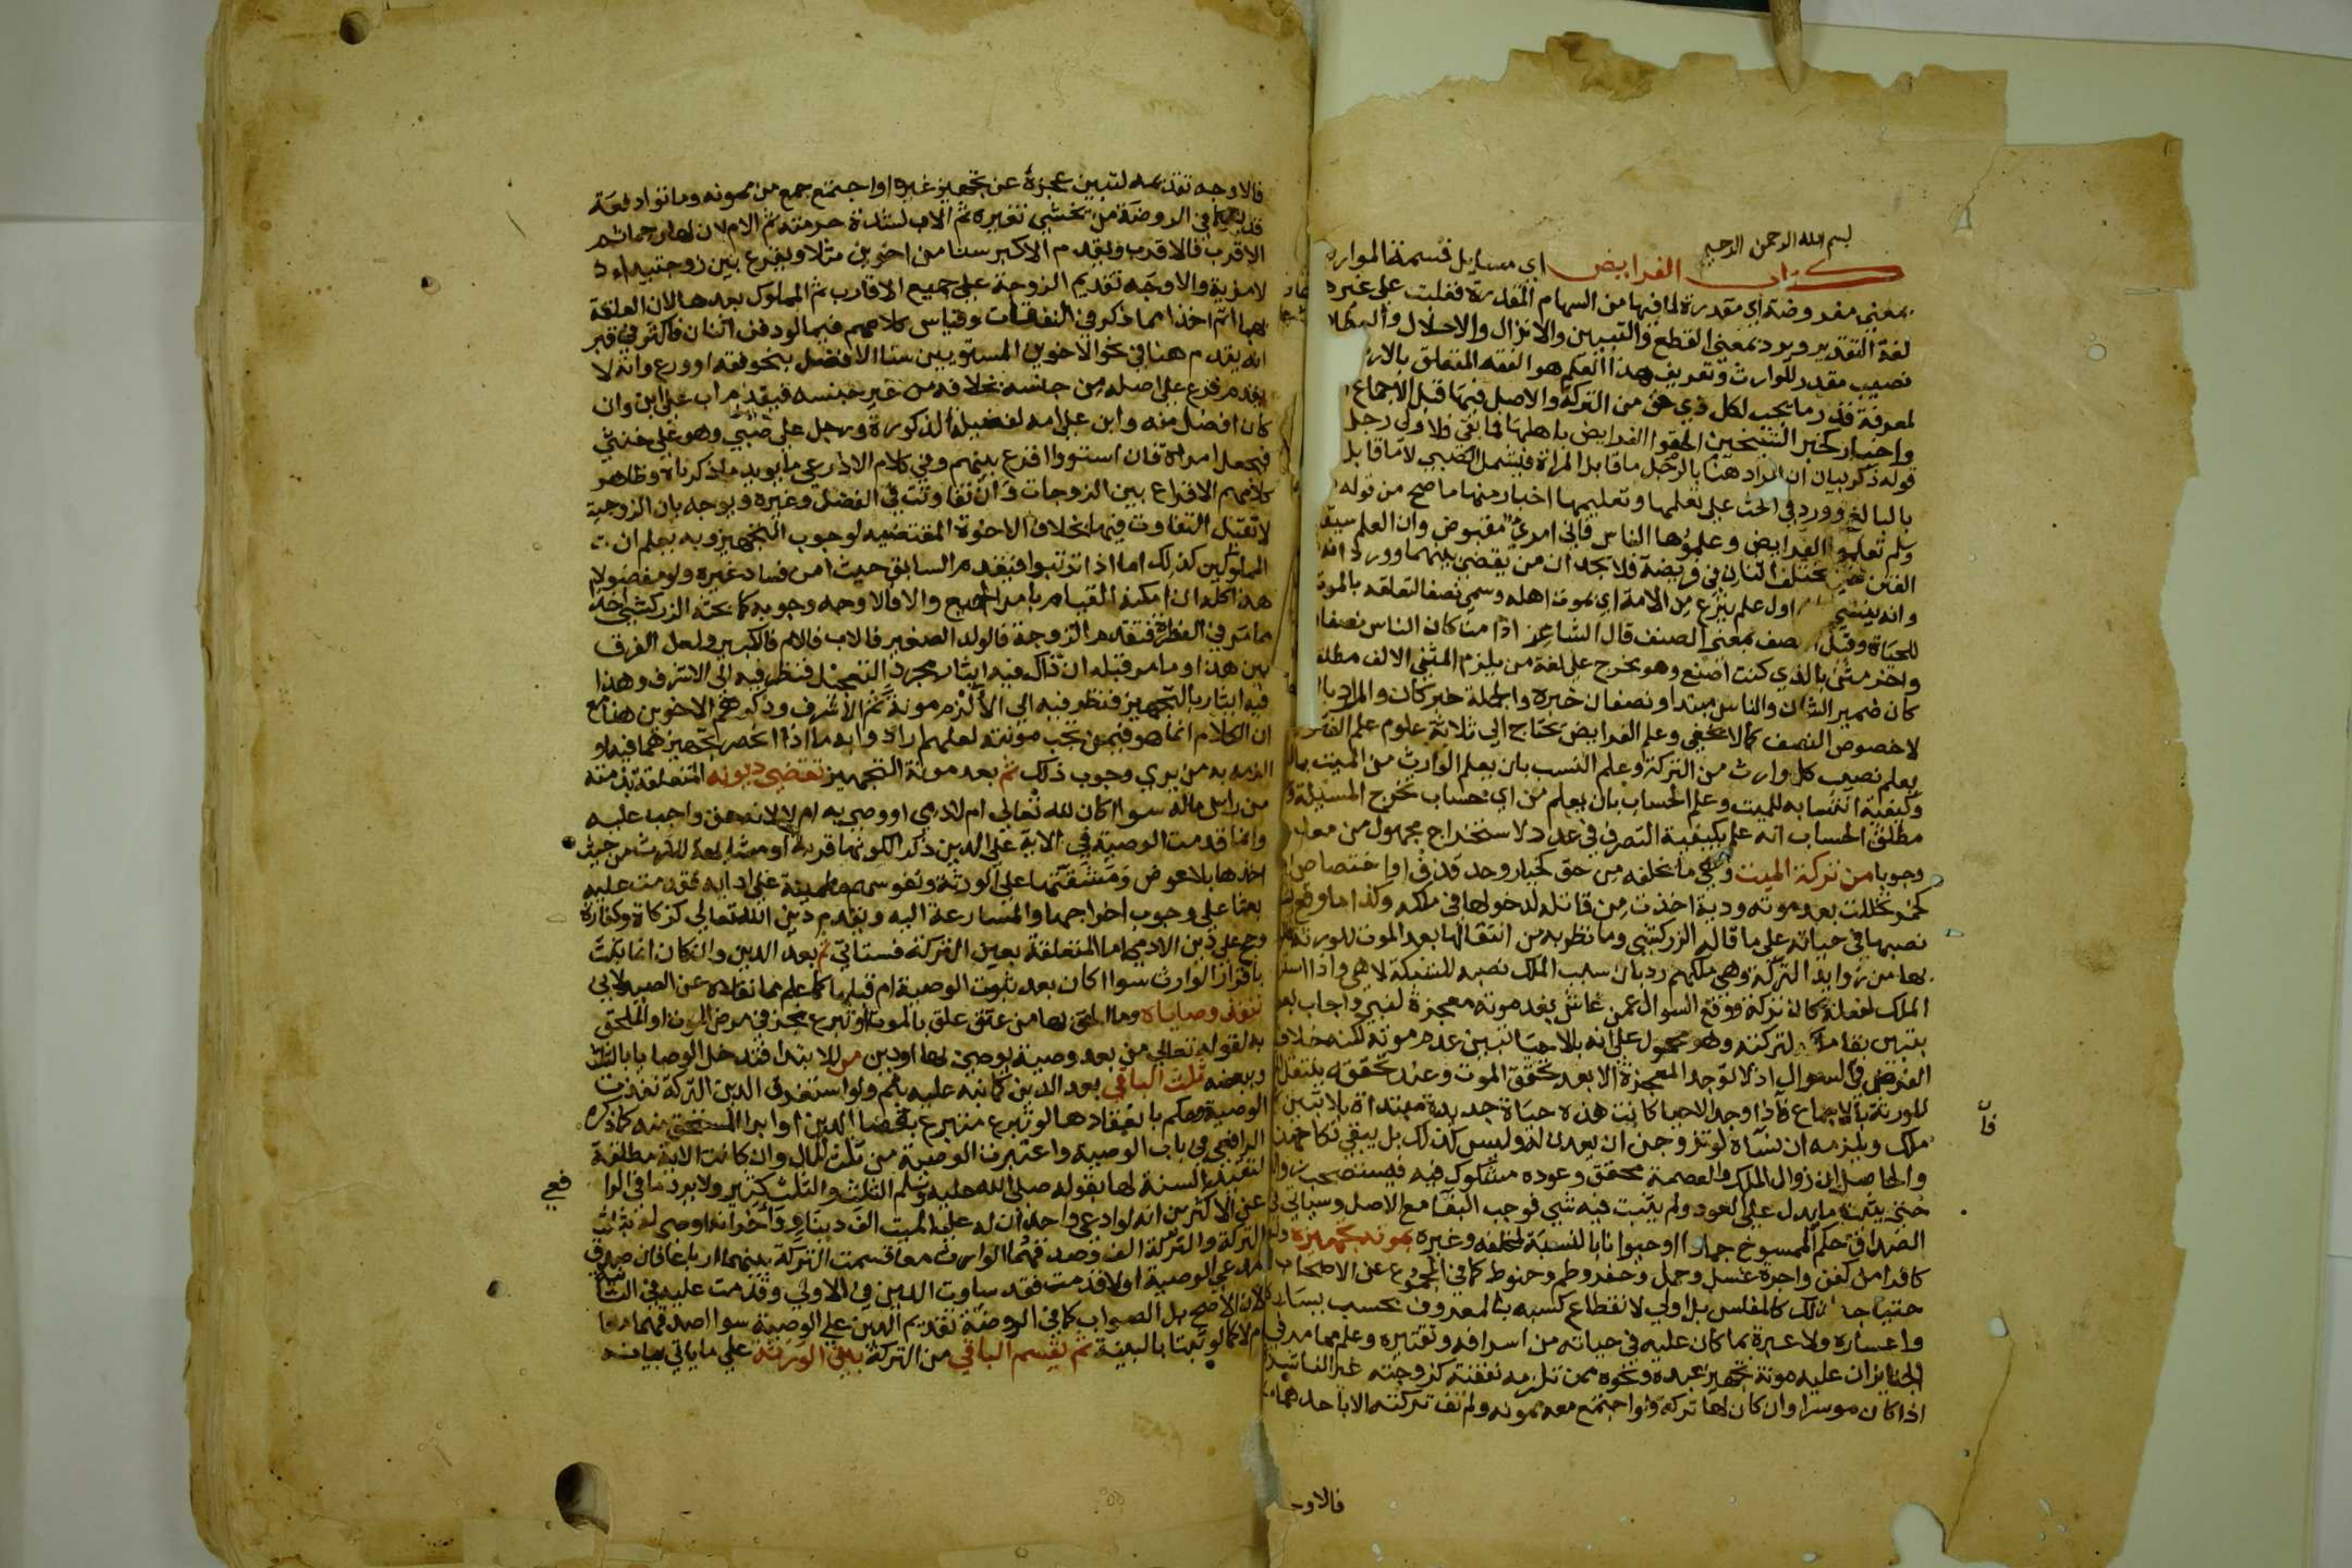 بسم الله الرحمن الرحيم
كتاب الفرايض اي مسايل قسمة الموار
بمعني مفروضة اي مقدرة لما فيها من السهام المقدرة فغلبت علي غيره
لغة التقدير ويرد بمعني القطع والتبيين والانزال والاحلال والعطا
نصيب مقدر للوارث وتعريف هذا العلم هو الفقه المتعلق بالار
لمعرفة قدر ما يجب لكل ذي حق من التركة والاصل فيها قبل الاجماع
واخبار كخبر الشيخين الحقوا الفرايض باهلها فما بقي فلاولي رجل
قوله ذكر بيان ان المراد هنا بالرجل ما قابل المراة فيشمل الصبي لا ما قابل
بالبالغ وورد في الحث علي تعلمها وتعليمها اخبار منها ما صح من قوله
وسلم تعلموا الفرايض وعلموها الناس فاني امرؤ مقبوض وان العلم سيق
الفتن حتي يختلف اثنان في فريضة فلا يجد ان من يقضي بينهما وورد انه
وانه ينسي اول علم ينزع من الامة اي بموت اهله وسمي نصفا لتعلقه بالموت
للحياة وقيل نصف بمعني الصنف قال الشاعر اذا مت كان الناس نصفا
واخر مثن بالذي كنت اصنع وهو يخرج علي لغة من يلزم المثني الالف مطلقا
كان ضمير الشان والناس مبتدا ونصفان خبره والجملة خبر كان والمراد با
لا خصوص النصف كما لا يخفي وعلم الفرايض يحتاج الي ثلاثة علوم علم الفت
يعلم نصيب كل وارث من التركة وعلم النسب بان يعلم الوارث من الميت بال
وكيفية انتسابه للميت وعلم الحساب بان يعلم من اي حساب تخرج المسيلة و
مطلق الحساب انه علم بكيفية التصرف في عدد لاستخراج مجهول من معل
وجوبا من تركة الميت وهي ما يخلفه من حق كخيار وحد قذف او اختصاص ا
كخمر تخللت بعد موته ودية اخذت من قاتله لدخولها في ملكه وكذا ما وقع
نصبها في حياته علي ما قاله الزركشي وما نظر به من انتقالها بعد الموت للورثة
بها من زوايد التركة وهي ملكهم رد بان سبب الملك نصبه للشبكة لا هي واذا است
الملك لفعله كان تركة ووقع السوال عمن عاش بعد موته معجزة لنبي واجاب بع
بتبين بقا ملكه لتركته وهو محمول علي انه بالاحيا تبين عدم موته لكنه خلاف
الفرض في السوال اذ لا توجد المعجزة الا بعد تحقق الموت وعند تحققه ينتقل
للورثة بالاجماع فاذا وجد الاحيا كانت هذه حياة جديدة مبتداة بلا تبين
ملك ويلزمه ان نساه لو تزوجن ان يعدن له وليس كذلك بل يبقي نكاحهن
والحاصل ان زوال الملك والعصمة محقق وعوده مشكوك فيه فيستصحب
حتي يثبت ما يدل علي العود ولم يثبت فيه شي فوجب البقا مع الاصل وسياتي
الصداق حكم الممسوخ جمادا او حيوانا بالنسبة لمخلفه وغيره بمونة تجهيزه
كافراد من كفن واجرة غسل وحمل وحفر وطم وحنوط كما في المجموع عن الاصحاب
لاحتياجه لذلك كالمفلس بل اولي لانقطاع كسبه بالمعروف بحسب يساره
واعساره ولا عبرة بما كان عليه في حياته من اسرافه وتقتيره وعلم مما مر في
الجنايز ان عليه مونة تجهيز عبده ونحوه ممن تلزمه نفقته كزوجته غير الناشزة
اذا كان موسرا وان كان لها تركة ولو اجتمع معه ممونه ولم تف تركته الا باحدهما
فا
فالاوجه
فالاوجه تقديمه لتبين عجزه عن تجهيز غيره او اجتمع جمع من ممونه وماتوا دفعة
قدم كما في الروضة من يخشي تغيره ثم الاب لشدة حرمته ثم الام لان لها رحما ثم
الاقرب فالاقرب ويقدم الاكبر سنا من اخوين مثلا ويقرع بين زوجتيه اذ
لا مزية والاوجه تقديم الزوجة علي جميع الاقارب ثم المملوك بعدها لان العلقة
بها اتم اخذا مما ذكر في النفقات وقياس كلامهم فيما لو دفن اثنان فاكثر في قبر
انه يقدم هنا في نحو الاخوين المستويين سنا الافضل بنحو فقه او ورع وانه لا
يقدم فرع علي اصله من جنسه بخلافه من غير جنسه فيقدم اب علي ابن وان
كان افضل منه وابن علي امه لفضيلة الذكورة ورجل علي صبي وهو علي خنثي
فخنثي علي امراة فان استووا اقرع بينهم وفي كلام الاذرعي ما يويد ما ذكرناه وظاهر
كلامهم الاقراع بين الزوجات وان تفاوتت في الفضل وغيره ويوجه بان الزوجية
لا تقبل التفاوت فيها بخلاف الاخوة المقتضية لوجوب التجهيز وبه يعلم ان
المملوكين كذلك اما اذا ترتبوا فيقدم السابق حيث امن فساد غيره ولو مفضولا
هذا كله ان امكنه القيام بامر الجميع والا فالاوجه وجوبه كما بحثه الزركشي اخذا
مما مر في الفطرة فتقدم الزوجة فالولد الصغير فالاب فالام فالكبير ولعل الفرق
بين هذا وما مر قبله ان ذاك فيه ايثار بمجرد التعجيل فنظر فيه الي الاشرف وهذا
فيه ايثار بالتجهيز فنظر فيه الي الالزم مونة ثم الاشرف وذكرهم الاخوين هنا مع
ان الكلام انما هو فيمن تجب مونته لعلهم ارادوا به ما اذا انحصر تجهيزهما فيه او
الزمه به من يري وجوب ذلك ثم بعد مونة التجهيز تقضي ديونه المتعلقة بذمته
من راس ماله سوا كان لله تعالي ام لادمي اووصي به ام لا لانه حق واجب عليه
وانما قدمت الوصية في الاية علي الدين ذكرا لكونها قربة او مشابهة للارث من حيث
اخذها بلا عوض ومشقتها علي الورثة ونفوسهم مطمينة علي ادايه فقدمت عليه
بعثا علي وجوب اخراجها والمسارعة اليه ويقدم دين الله تعالي كزكاة وكفارة
وحج علي دين الادمي اما المتعلقة بعين التركة فستاتي ثم بعد الدين وان كان انما يثبت
باقرار الوارث سوا اكان بعد ثبوت الوصية ام قبلها كما علم مما نقلاه عن الصيدلاني
تنفذ وصاياه وما الحق بها من عتق علق بالموت وتبرع نجز في مرض الموت او الملحق
به لقوله تعالي من بعد وصية يوصي بها او دين من للابتدا فتدخل الوصايا بالثلث
وببعضه ثلث الباقي بعد الدين كما نبه عليه بثم ولو استغرق الدين التركة نفذت
الوصية وحكم بانعقادها لو تبرع متبرع بقضا الدين او ابرا المستحق منه كما ذكره
الرافعي في باب الوصية واعتبرت الوصية من ثلث المال وان كانت الاية مطلقة
لتقييد السنة لها بقوله صلي الله عليه وسلم الثلث والثلث كثير ولا يرد ما في الرا
فعي
عن الاكثرين انه لو ادعي واحد ان له علي الميت الف دينار واخر انه اوصي له بثلث
التركة والتركة الف وصدقهما الوارث معا قسمت التركة بينهما ارباعا فان صدق
مدعي الوصية اولا قدمت فقد ساوت الدين في الاولي وقدمت عليه في الثا
لان الاصح بل الصواب كما في الروضة تقديم الدين علي الوصية سوا اصدقهما معا
ام لا كما لو ثبتا بالبينة ثم يقسم الباقي من التركة بين الورثة علي ما ياتي بيانه